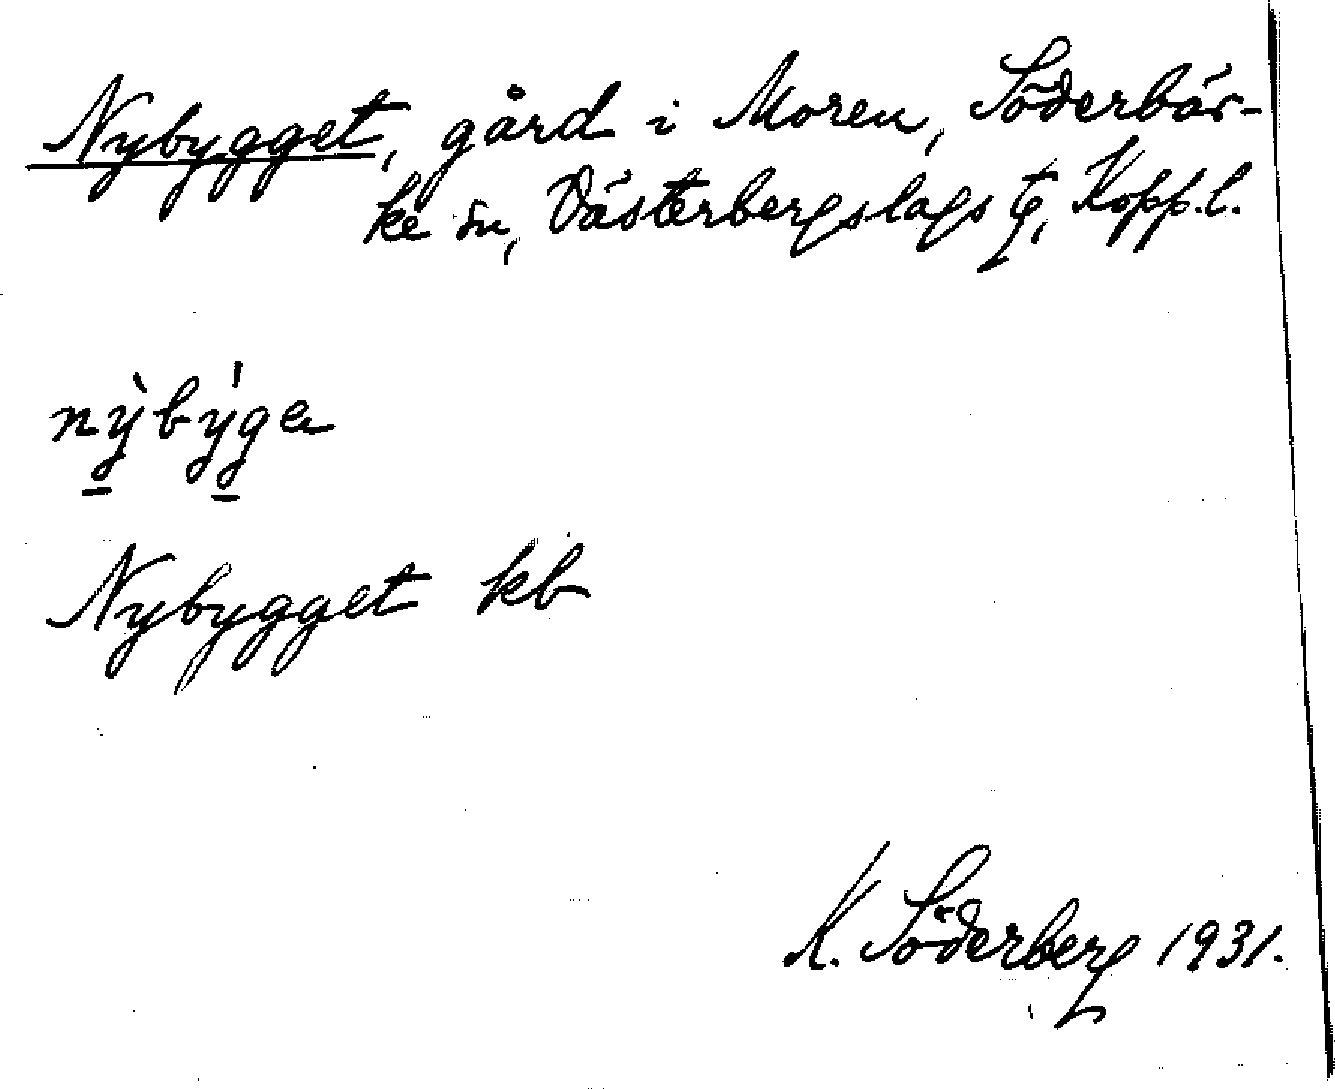 Nybygget, gård i Moren, Söderbär-
ke sn, Västerbergslags tg, Kopp.l.
nỳbýga
Nybygget kb
K. Söderberg 1931.